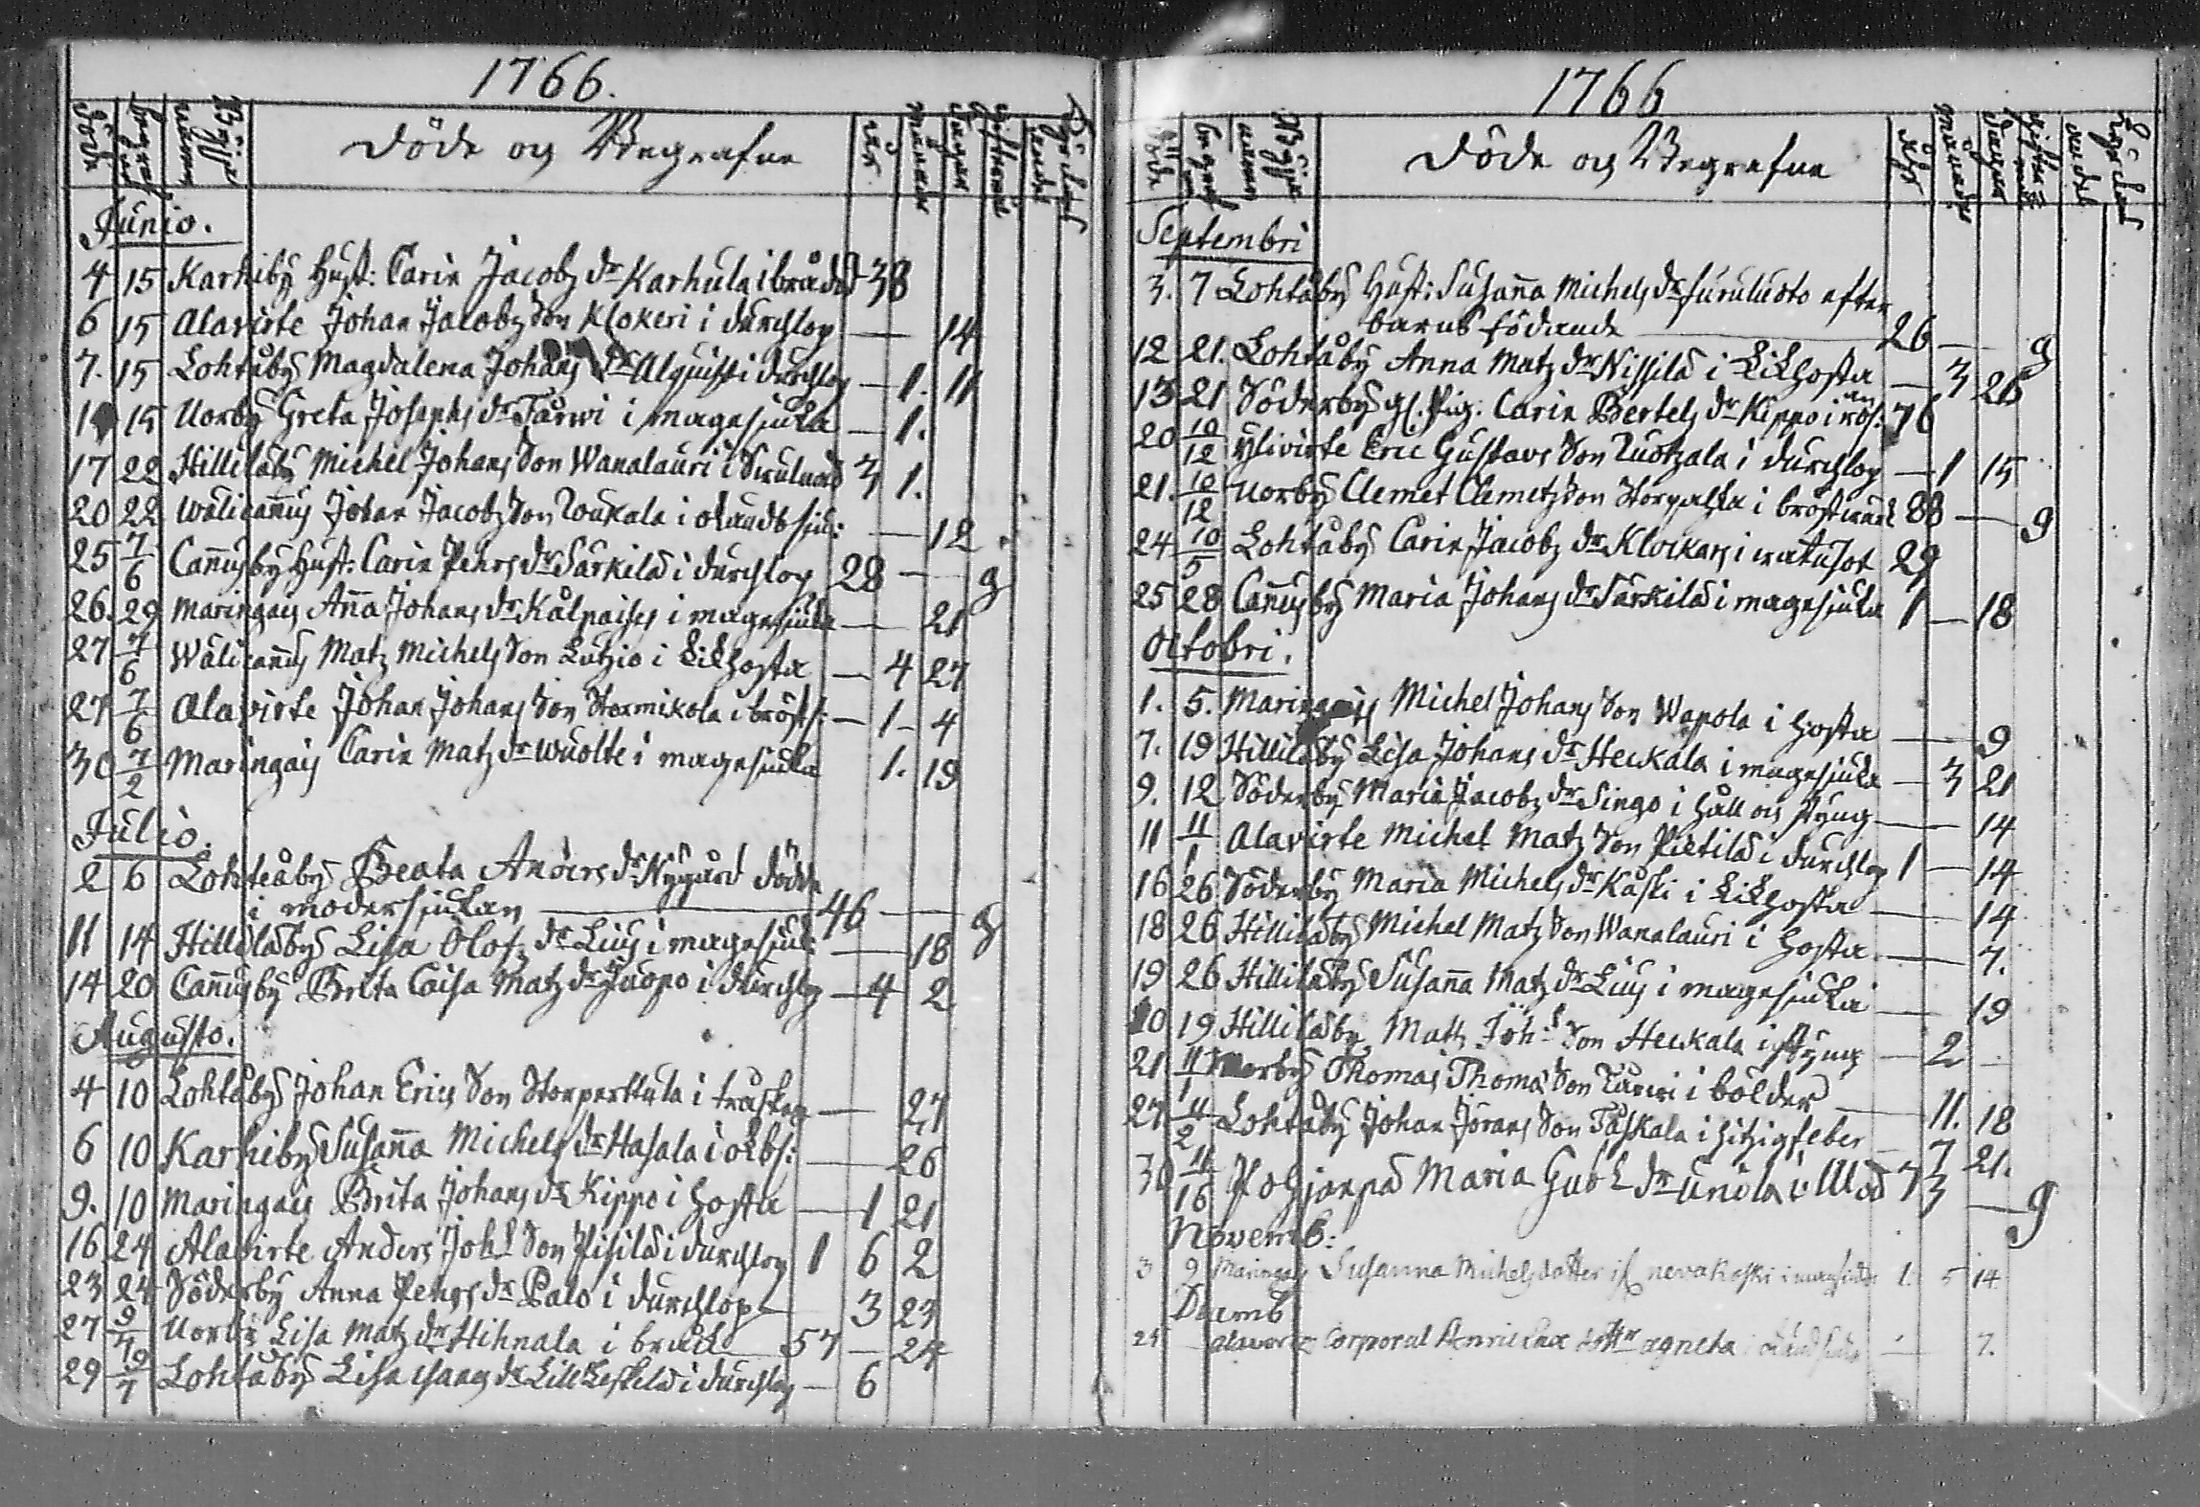 1766.
Döde
begrafne
Byjar namn
Döde och Begrafne
Åhr
Månader
Dagar
Junio.
4 15 Karhiby Hust: Carin Jacobs dr Karhula i bråded 38
6 15 Alavirte Johan Jacobs Son Klokeri i durchlop — 14
7. 15 Lohtåby Magdalena Johans dr Alquist i durchlop — 1. 11
15 Uorby Greta Josephs dr Tarwi i magesjuka — 1.
17 22 Hillilaby Michel Johans Son Wanalauri i 3 1.
20 22 Wälicannus Johan Jacobs Son Toukala i okändsjuk: — 12
25 7/6 Cannusby Hust: Carin Pehrs dr Särkilä i durchlop 28 — g
26. 29 Maringais Anna Johans dr Kålpaises i magesjuka — 21
27 7/6 Wälicannus Matz Michels Son Lutzio i Kikhosta — 4 27
27 7/6 Alavirte Johan Johans Son Stormikola i bröst: — 1 - 4
30 7/2 Maringais Carin Matz dr Wuolte i magesjuka 1. 19
Julio.
2 6 Lohteåby Beata Anders dr Nygård dödde
i modersjukan — 46 — g
11 14 Hillilåby Lisa Olofz dr Liuj i magesjuk: — 18
14 20 Cannusby Brita Caisa Matz dr Juopo i durchlop — 4 2
Augusto.
4 10 Lohtåby Johan Erics Son Storperttula i tråsken — 27
6 10 Karhiby Susanna Michels dr Hasala i okbs: — 26
9. 10 Maringais Brita Johans dr Kippo i hosta — 1 21
16 24 Alavirte Anders Johs Son Pisilä i durchlop 1 6 2
23 24 Söderby Anna Pehrs dr Palo i durchlop — 3 23
27 9/19 Uorby Lisa Matz dr Hihnala i bråck 57 — 24
29 9/7 Lohtåby Lisa Isaacs dr Lill Leskelä i durchlop — 6
1766
Döde
begrafne
Byjar namn
Döde och Begrafne
Åhr
Månader
Dagar
Septembri
3. 7 Lohtåby Hust: Susanna Michels dr Furuluoto efter
barns födande — 26 — g
12 21. Lohtåby Anna Matz dr Nissilä i Kikhosta — 3 26
13 21 Söderby gl. Pig: Carin Bertels dr Kippo i ros: 76
20 10/12 Ylivirte Eric Gustavs Son Tuotzala i durchlop — 1 15
21. 10/12 Uorby Clemet Clemetz Son Storpahka i bröstwärk 88 — g
24 10/5 Lohtåby Carin Jacobs dr Klockars i watusot 29
25 28 Cannusby Maria Johans dr Särkilä i magesjuka 1 — 18
Octobri.
1. 5. Maringais Michel Johans Son Wapola i hosta — 9
7. 19 Hillilåby Lisa Johans dr Heckala i magesjuka — 3 21
9. 12 Söderby Maria Jacobs dr Singo i håll och styng — 14
11 11/1 Alavirte Michel Matz Son Pietilä i durchlop 1 — 14
16 26 Söderby Maria Michels dr Kåski i Kikhosta — 14
18 26 Hillilåby Michel Matz Son Wanalauri i hosta — 7.
19 26 Hillilåby Susanna Matz dr Liuj i magesjuka — 19
20 19 Hillilåby Matts Johs Son Heckala i styng — 2
21 11/1 Uorby Thomas Thomæ Son Tarwi i bölder — 11. 18
27 11/2 Lohtåby Johan Jörans Son Påskala i hitzigfeber — 7 21.
30 11/16 Pohjanpä Maria Gabls dr Uniola i 73 — g
Novemb:
3 9 Maringais Susanna Michelsdotter if nevakoski i magsiuka 1. 5 14
Decemb
25 Alavirte Corporal dotter agneta 7.